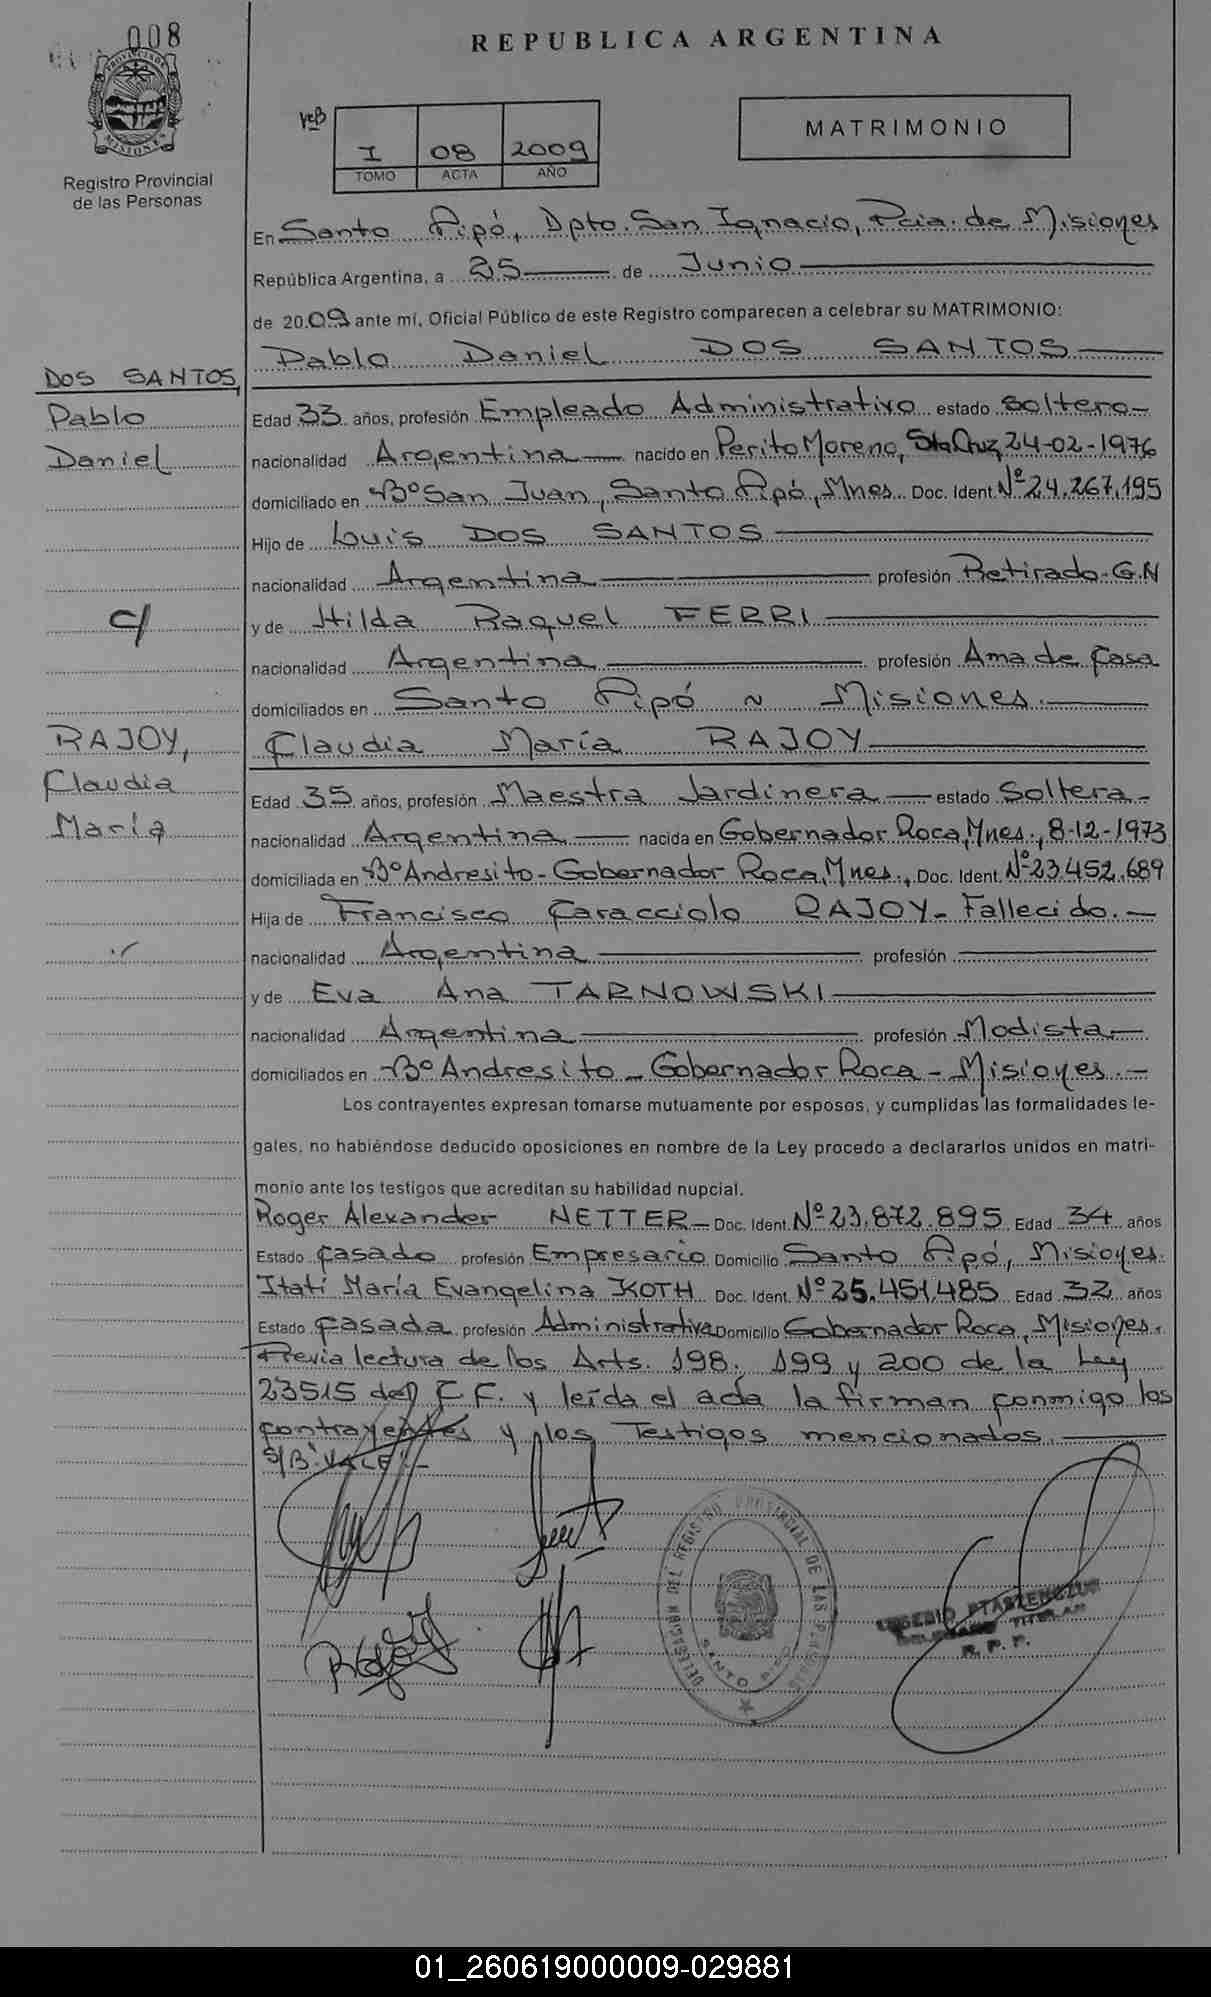 008
REPUBLICA ARGENTINA
PROVINCIA DE MISIONES
Registro Provincial
de las Personas
I 08 2009
TOMO ACTA AÑO
MATRIMONIO
En Santo Pipó, Dpto. San Ignacio, Pcia. de Misiones
República Argentina, a 25 de Junio
de 2009 ante mí, Oficial Público de este Registro comparecen a celebrar su MATRIMONIO:
Pablo Daniel DOS SANTOS
DOS SANTOS,
Pablo
Daniel
c/
RAJOY,
Claudia
María
Edad 33 años, profesión Empleado Administrativo estado soltero
nacionalidad Argentina nacido en Perito Moreno, Sta Cruz, 24-02-1976
domiciliado en Bº San Juan, Santo Pipó, Mnes. Doc. Ident. Nº 24.267.195
Hijo de Luis DOS SANTOS
nacionalidad Argentina profesión Retirado-G.N
y de Hilda Raquel FERRI
nacionalidad Argentina profesión Ama de Casa
domiciliados en Santo Pipó ~ Misiones.
Claudia María RAJOY
Edad 35 años, profesión Maestra Jardinera estado Soltera
nacionalidad Argentina nacida en Gobernador Roca, Mnes., 8-12-1973
domiciliada en Bº Andresito - Gobernador Roca, Mnes., Doc. Ident. Nº 23.452.689
Hija de Francisco Caracciolo RAJOY - Fallecido.
nacionalidad Argentina profesión
y de Eva Ana TARNOWSKI
nacionalidad Argentina profesión Modista
domiciliados en Bº Andresito - Gobernador Roca - Misiones.
Los contrayentes expresan tomarse mutuamente por esposos, y cumplidas las formalidades le-
gales, no habiéndose deducido oposiciones en nombre de la Ley procedo a declararlos unidos en matri-
monio ante los testigos que acreditan su habilidad nupcial.
Roger Alexander NETTER Doc. Ident. Nº 23.872.895 Edad 34 años
Estado Casado profesión Empresario Domicilio Santo Pipó, Misiones.
Itatí María Evangelina KOTH Doc. Ident. Nº 25.451.485 Edad 32 años
Estado Casada profesión Administrativa Domicilio Gobernador Roca, Misiones.
Previa lectura de los Arts. 198. 199 y 200 de la Ley
23515 del C C. y leída el acta la firman conmigo los
contrayentes y los Testigos mencionados.
S/B: VALE.
DELEGACION DEL REGISTRO PROVINCIAL DE LAS PERSONAS
SANTO PIPO
EUGENIO PTASZENCZUK
DELEGADO TITULAR
R. P. P.
01_260619000009-029881